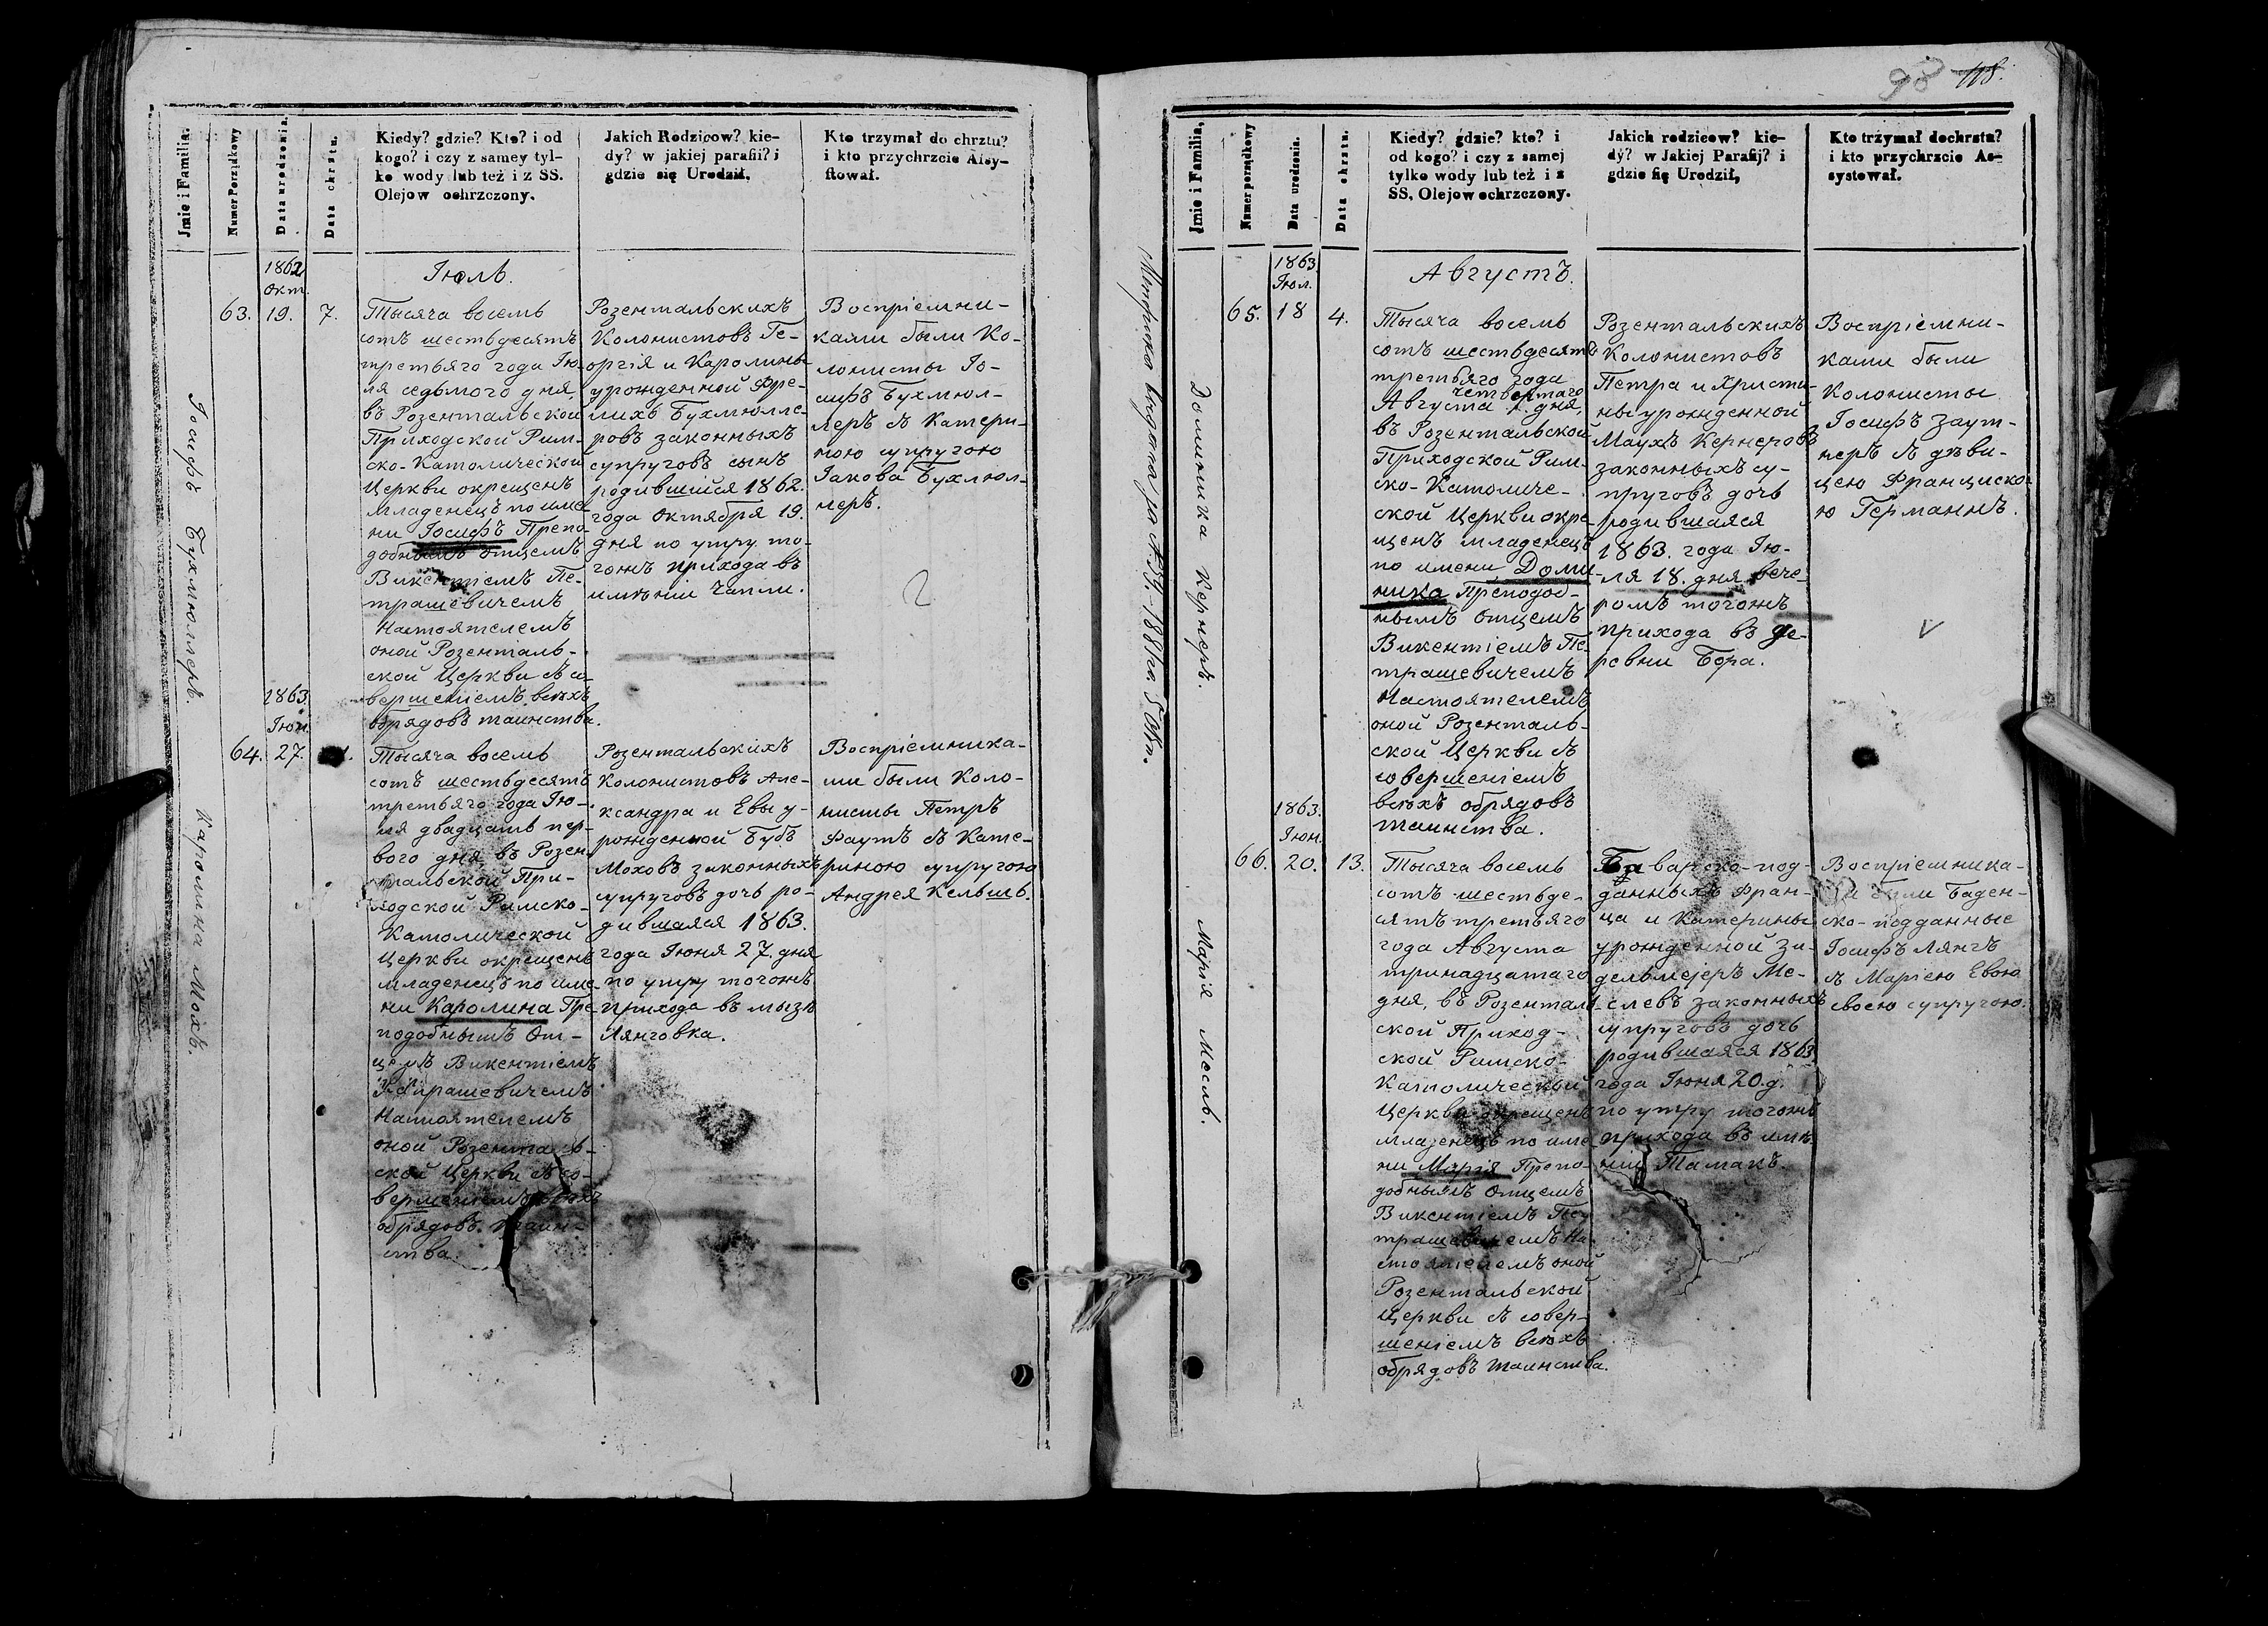 Jmie i Familia.
Numer Porządkowy
Data urodzenia.
Data chrztu.
Kiedy? gdzie? Kto? i od
kogo? i czy z samey tyl-
ko wody lub też i z SS.
Olejow ochrzczony.
Jakich Rodzicow? kie-
dy? w jakiej parafii? i
gdzie się Urodził.
Kto trzymał do chrztu?
i kto przychrzcie Assy-
stował.
1862
Окт.
Іюль.
Іосифъ Бухмюллеръ.
63. 19. 7.
Тысяча восемь
сотъ шестьдесятъ
третьяго года Ію-
ля седьмого дня,
въ Розентальской
Приходской Рим-
ско-Католической
Церкви окрещенъ
младенецъ по име-
ни Іосифъ Препо-
добнымъ отцемъ
Викентіемъ Пе-
трашевичемъ
Настоятелемъ
оной Розенталь-
ской Церкви съ со-
вершеніемъ всѣхъ
обрядовъ таинства.
Розентальскихъ
Колонистовъ Ге-
оргія и Каролины
урожденной Фре-
лихъ Бухмюлле-
ровъ законныхъ
супруговъ сынъ
родившійся 1862.
года Октября 19.
дня по утру то-
гожъ прихода въ
имѣніи Чапли.
Воспріемни-
ками были Ко-
лонисты Іо-
сифъ Бухмюл-
леръ съ Катери-
ною супругою
Іакова Бухмюл-
леръ.
1863.
Іюн.
Каролина Мохъ.
64. 27.
Тысяча восемь
сотъ шестьдесятъ
третьяго года Ію-
ля двадцать пер-
вого дня, въ Розен-
тальской При-
ходской Римско-
Католической
Церкви окрещенъ
младенецъ по име-
ни Каролина Пре-
подобнымъ От-
цемъ Викентіемъ
Петрашевичемъ
Настоятелемъ
оной Розенталь-
ской Церкви съ со-
вершеніемъ всѣхъ
обрядовъ таин-
ства.
Розентальскихъ
Колонистовъ Але-
ксандра и Евы у-
рожденной Бубъ
Моховъ законныхъ
супруговъ дочь ро-
дившаяся 1863.
года Іюня 27. дня
по утру тогожъ
прихода въ мызѣ
Лянговка.
Воспріемника-
ми были Коло-
нисты Петръ
Фаутъ съ Кате-
риною супругою
Андрея Кельшъ.
98 118.
Jmie i Familia,
Numer porządkowy
Data urodzenia.
Data chrztu.
Kiedy? gdzie? kto? i
od kogo? i czy z samej
tylko wody lub też i z
SS. Olejow ochrzczony.
Jakich rodzicow? kie-
dy? w Jakiej Parafij? i
gdzie się Urodził,
Kto trzymał dochrztu?
i kto przychrzcie As-
systował.
Метрика выдана за №34.-1881го
1863.
Іюл.
Августъ.
Доминика Кернеръ.
65. 18 4.
Тысяча восемь
сотъ шестьдесятъ
третьяго года
четвертаго
Августа дня,
въ Розентальской
Приходской Рим-
ско-Католиче-
ской Церкви окре-
щенъ младенецъ
по имени Доми-
ника Преподоб-
нымъ Отцемъ
Викентіемъ Пе-
трашевичемъ
Настоятелемъ
оной Розенталь-
ской Церкви съ
совершеніемъ
всѣхъ обрядовъ
таинства.
Розентальскихъ
Колонистовъ
Петра и Христи-
ны урожденной
Маухъ Кернеровъ
законныхъ су-
пруговъ дочь
родившаяся
1863. года Ію-
ля 18. дня вече-
ромъ тогожъ
прихода въ де-
ревни Бора.
Воспріемни-
ками были
Колонисты
Іосифъ Заут-
неръ съ дѣви-
цею Франциско-
ю Германнъ.
1863.
Іюн.
Марія Месль.
66. 20. 13.
Тысяча восемь
сотъ шестьде-
сятъ третьяго
года Августа
тринадцатаго
дня, въ Розенталь-
ской Приход-
ской Римско-
Католической
Церкви окрещенъ
младенецъ по име-
ни Марія Препо-
добнымъ Отцемъ
Викентіемъ Пе-
трашевичемъ На-
стоятелемъ оной
Розентальской
Церкви съ совер-
шеніемъ всѣхъ
обрядовъ таинства.
Баварско-под-
данныхъ Фран-
ца и Катерины
урожденной Зи-
дельмејеръ Ме-
слевъ законныхъ
супруговъ дочь
родившаяся 1863
года Іюня 20. д.
по утру тогожъ
прихода въ имѣ-
ніи Тамакъ.
Воспріемника-
ми были Баден-
ско-подданные
Іосифъ Лянгъ
съ Маріею Евою
своею супругою.